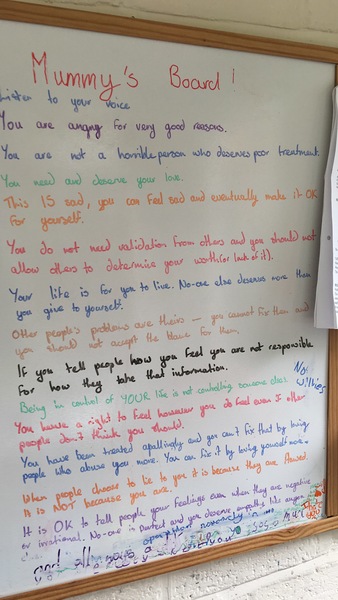 Mummy's Board!
Listen to your voice
You are angry for very good reasons.
You are not a horrible person who deserves poor treatment.
You need and deserve your love.
This IS sad, you can feel sad and eventually make it OK
for yourself.
You do not need validation from others and you should not
allow others to determine your worth (or lack of it).
Your life is for you to live. No-one else deserves more than
you give to yourself.
Other people's problems are theirs – you cannot fix them and
you should not accept the blame for them.
If you tell people how you feel you are not responsible
for how they take that information.
No
willies
Being in control of YOUR life is not controlling someone else.
You have a right to feel however you do feel even if other
people don't think you should.
You have been treated appallingly and you can't fix that by loving
people who abuse you more. You can fix it by loving yourself more.
When people choose to lie to you it is because they are flawed.
It is NOT because you are.
It is OK to tell people your feelings even when they are negative
or irrational. No-one is perfect and you deserve empathy like anyone
and all